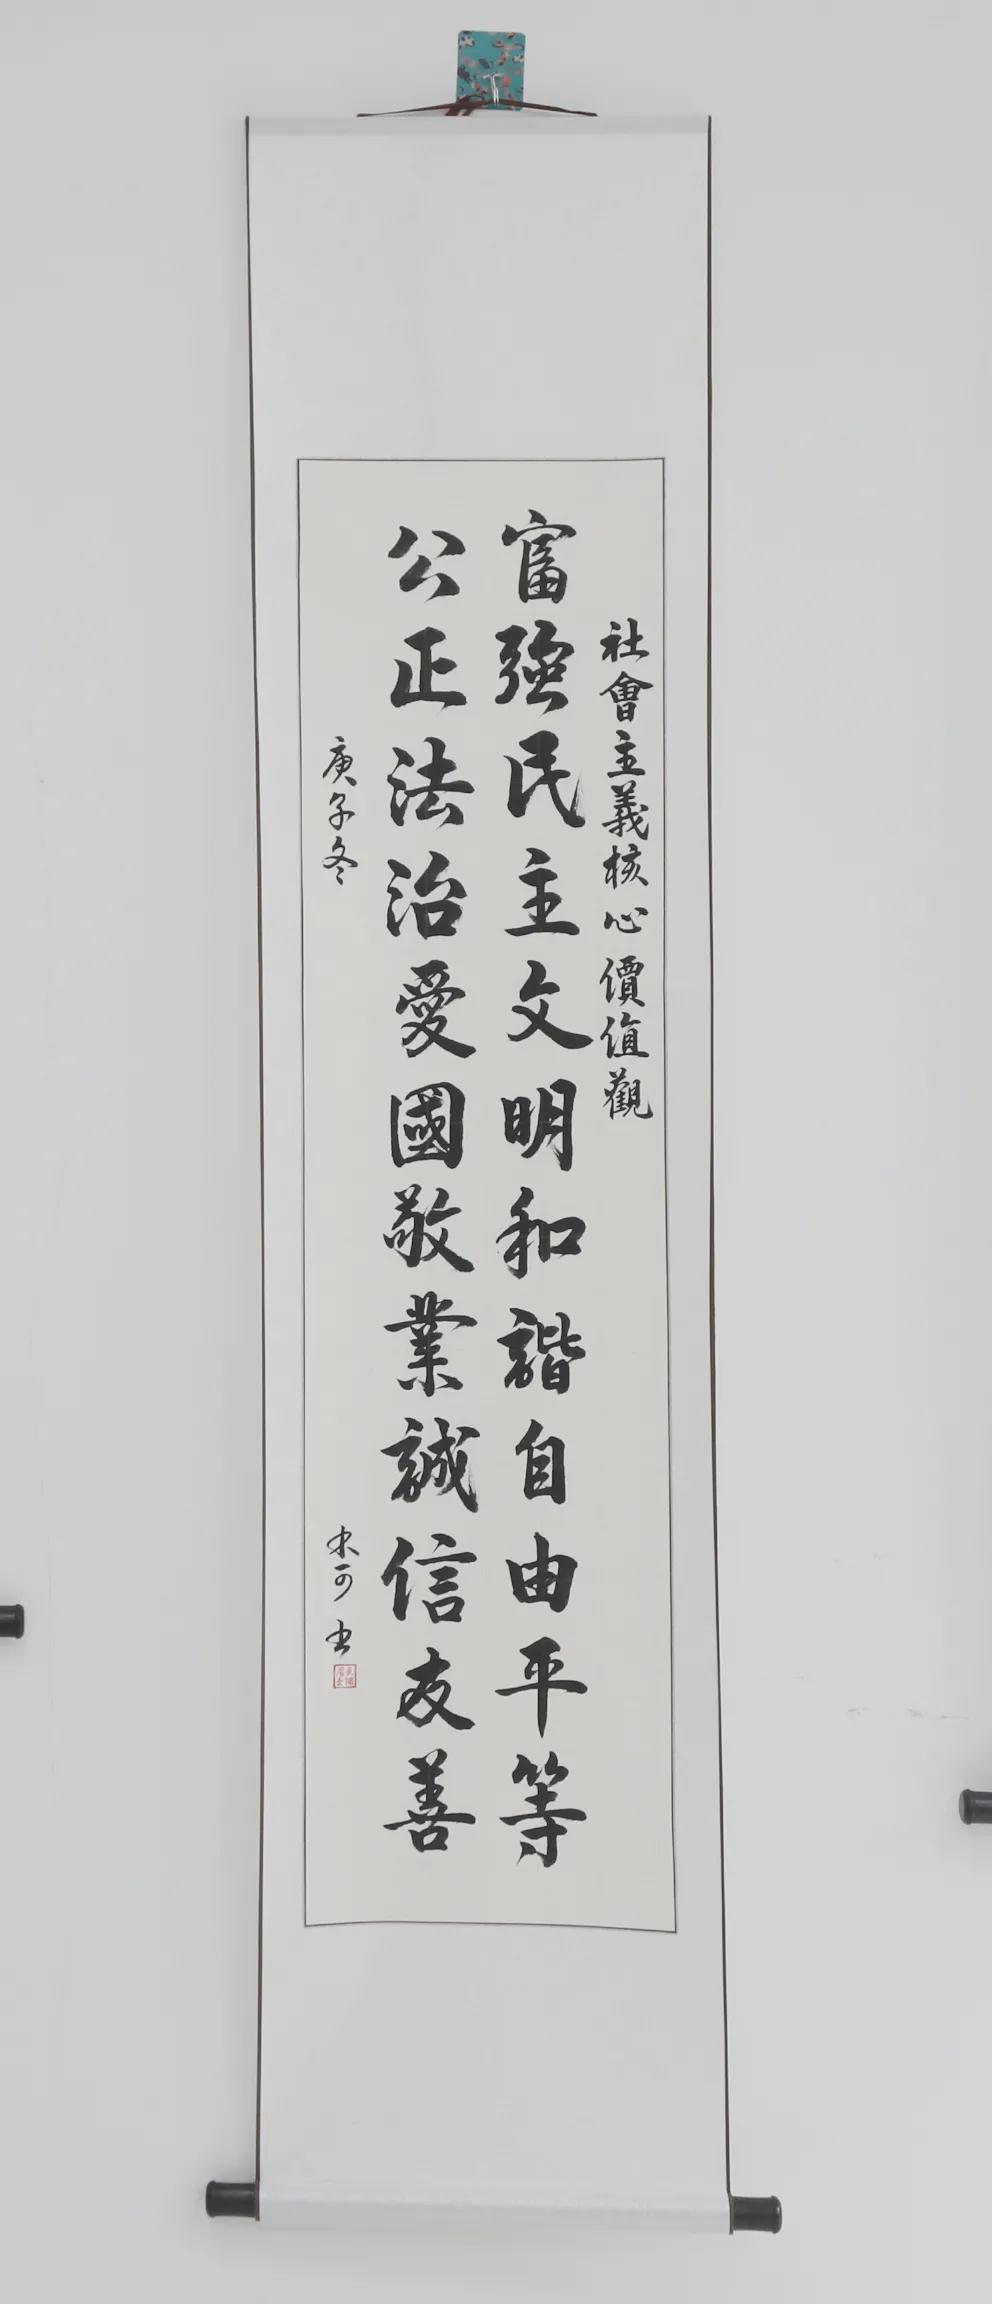 社會主義核心價值觀
富強民主文明和諧自由平等
公正法治愛國敬業誠信友善
庚子冬
可书